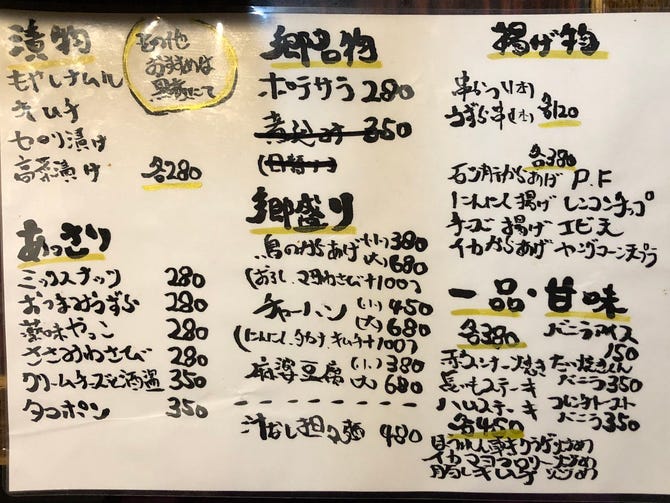 漬物
その他
おすすめは
黒板にて
もやしナムル
キムチ
セロリ漬け
高菜漬け 各280
あっさり
ミックスナッツ 280
おつまみうずら 280
薬味やっこ 280
ささみわさび 280
クリームチーズと酒盗 350
タコポン 350
郷名物
ポテサラ 280
350
郷盛り
鳥のからあげ (小) 380
(大) 680
(おろし、マヨわさび+100)
チャーハン (小) 450
(大) 680
(にんにく、タカナ、キムチ+100)
麻婆豆腐 (小) 380
(大) 680
汁なし担々麺 480
揚げ物
串かつ(1本)
うずら串(1本) 各120
各380
からあげ P.F
にんにく揚げ レンコンチップ
チーズ揚げ エビ天
イカからあげ ヤングコーン天プラ
一品・甘味
各380 バニラアイス
150
赤ウインナー焼き たい焼きくん
長いもステーキ バニラ 350
ハムステーキ フレンチトースト
各450 バニラ 350
イカマヨ